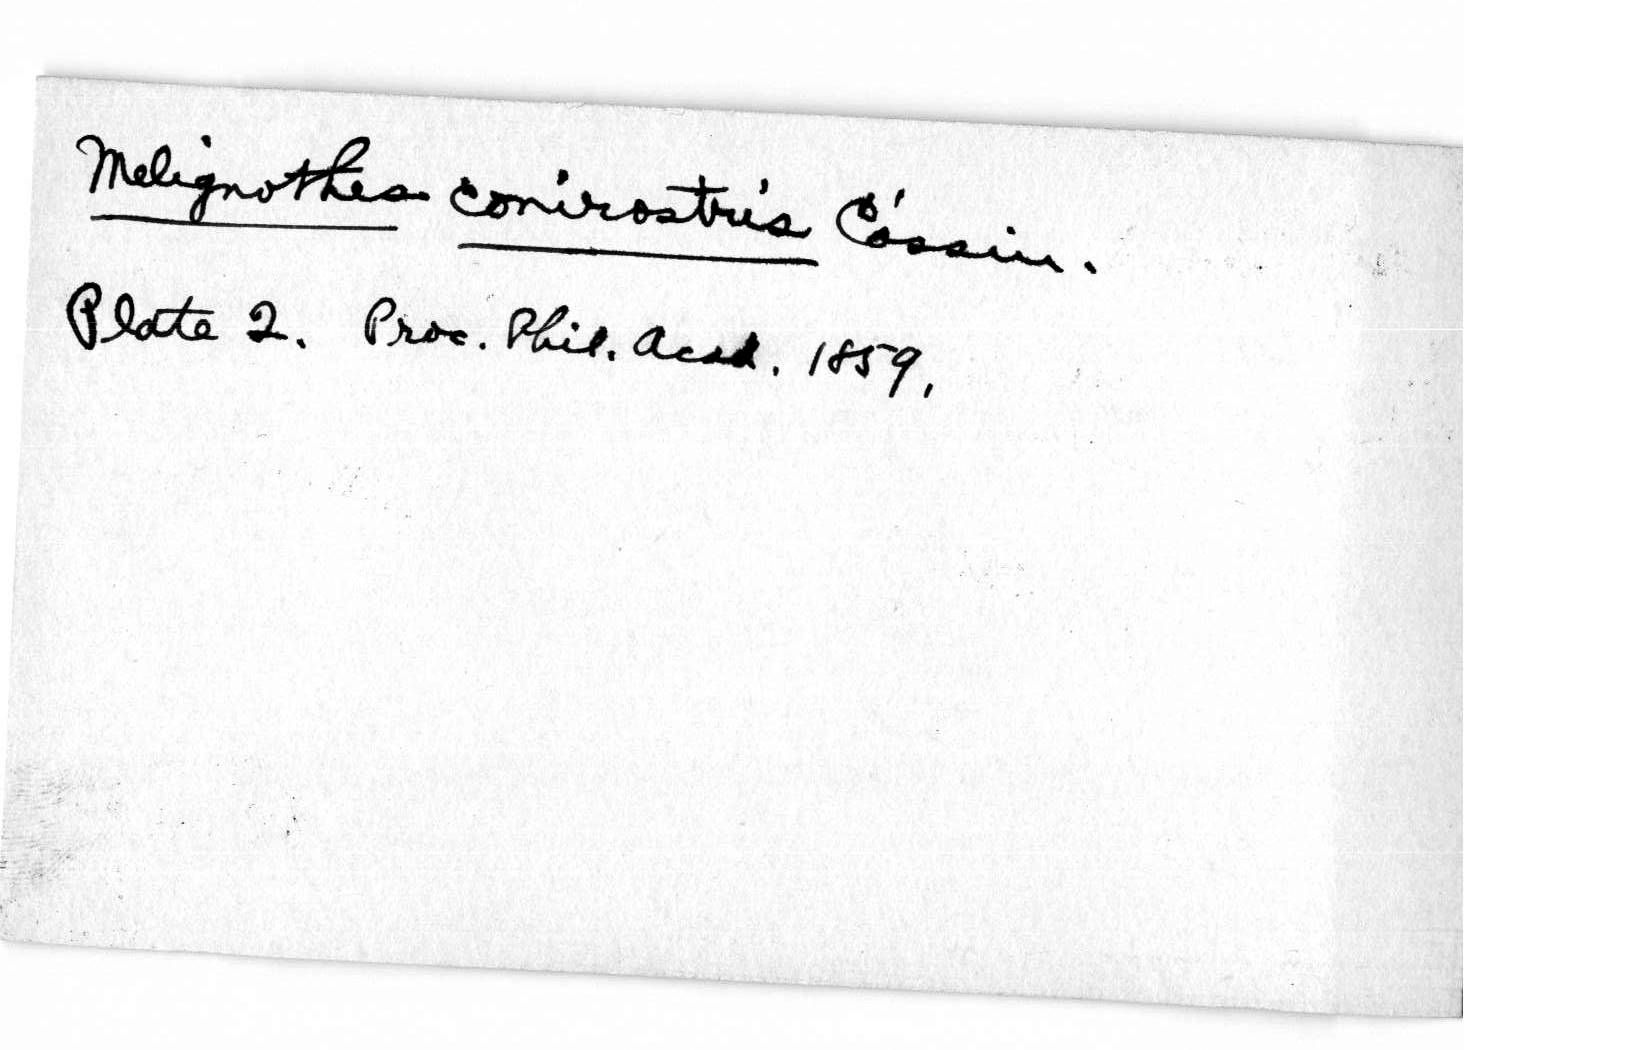 Melignothes conirostris Cassin.
Plate 2. Proc. Phil. Acad. 1859.